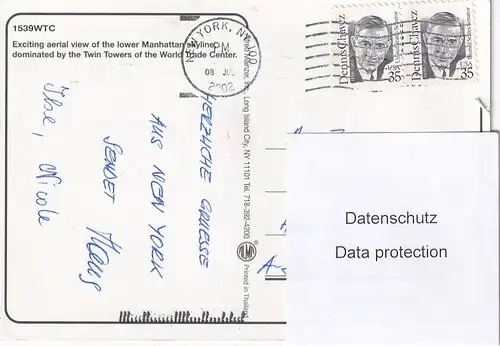 1539WTC
Exciting aerial view of the lower Manhattan skyline,
dominated by the Twin Towers of the World Trade Center.
NEW YORK, NY 100
PM
08 JUL
2002
Dennis Chavez
35
USA
United States Senator
Dennis Chavez
35
USA
United States Senator
HERZLICHE GRUESSE
AUS NEW YORK
SENDET
Nicole
Manzer, Inc., Long Island City, NY 11101 Tel. 718-392-4200
Printed in Thailand
Datenschutz
Data protection